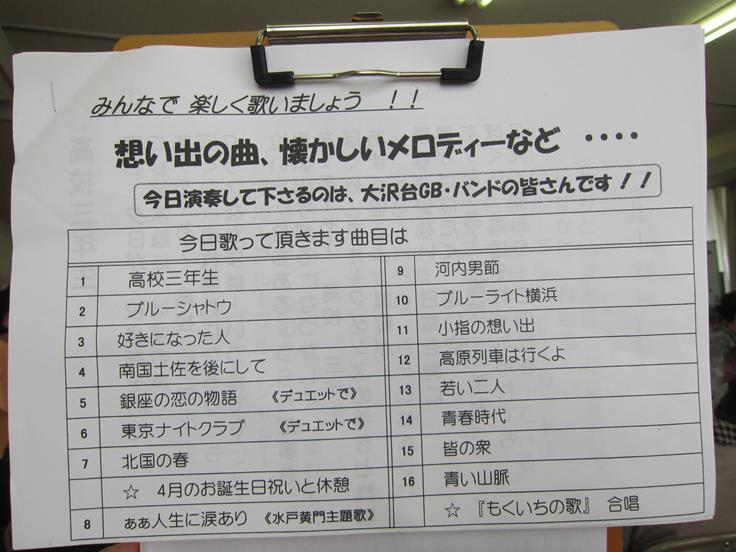 みんなで 楽しく歌いましょう ！！
想い出の曲、懐かしいメロディーなど ････
今日演奏して下さるのは、大沢台GB・バンドの皆さんです！！
今日歌って頂きます曲目は
1 高校三年生
2 ブルーシャトウ
3 好きになった人
4 南国土佐を後にして
5 銀座の恋の物語 《デュエットで》
6 東京ナイトクラブ 《デュエットで》
7 北国の春
☆ 4月のお誕生日祝いと休憩
8 ぁぁ人生に涙あり 《水戸黄門主題歌》
9 河内男節
10 ブルーライト横浜
11 小指の想い出
12 高原列車は行くよ
13 若い二人
14 青春時代
15 皆の衆
16 青い山脈
☆ 『もくいちの歌』 合唱
高校三年生